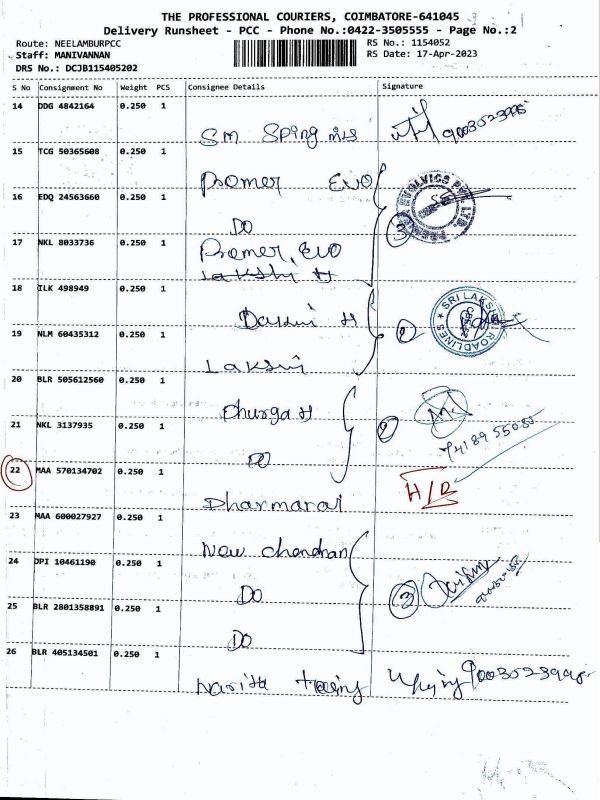 THE PROFESSIONAL COURIERS, COIMBATORE-641045
Delivery Runsheet - PCC - Phone No.:0422-3505555 - Page No.:2
Route: NEELAMBURPCC RS No.: 1154052
Staff: MANIVANNAN RS Date: 17-Apr-2023
DRS No.: DCJB115405202
S No Consignment No Weight PCS Consignee Details Signature
14 DDG 4842164 0.250 1
SM Sping மில்
15 TCG 50365608 0.250 1
Premer EVO
16 EDQ 24563660 0.250 1
DO 3
17 NKL 8033736 0.250 1
Premer EVO
Lakshi H
18 TLK 498949 0.250 1
H SRI LAKSHMI ROADLINES
19 NLM 60435312 0.250 1
Laksmi
20 BLR 505612560 0.250 1
Dhurga H
21 NKL 3137935 0.250 1
DO
22 MAA 570134702 0.250 1
Dharmaraj H/D
23 MAA 600027927 0.250 1
New chendran
24 DPI 10461190 0.250 1
DO 3
25 BLR 2801358891 0.250 1
DO
26 BLR 405134501 0.250 1
9003523998